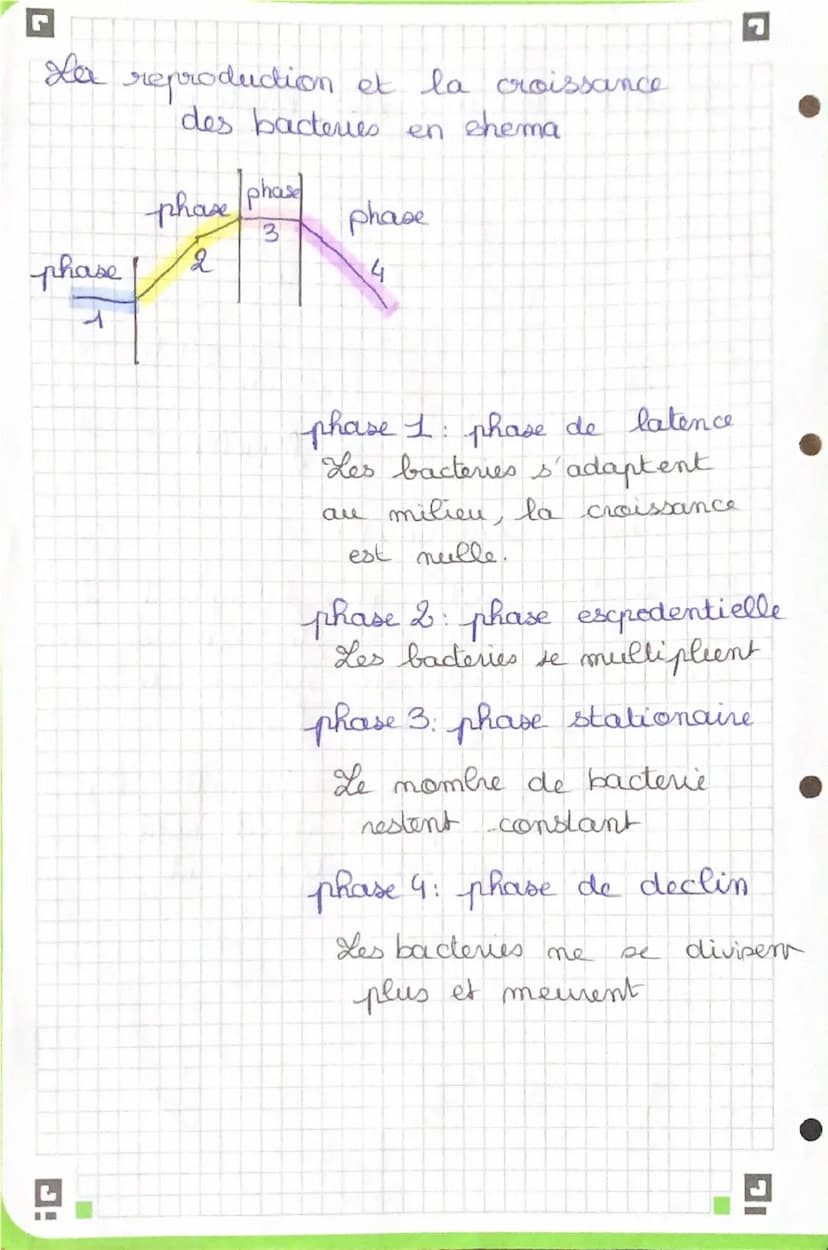 La reproduction et la croissance
des bacteries en shema
phase
phase
phase
phase
1
2
3
4
phase 1 : phase de latence
Les bacteries s'adaptent
au milieu, la croissance
est nulle.
phase 2 : phase escpedentielle
Les bacteries se multiplient
phase 3 : phase stationaire
Le nombre de bacterie
restent constant
phase 4 : phase de declin
Les bacteries ne se divisent
plus et meurent